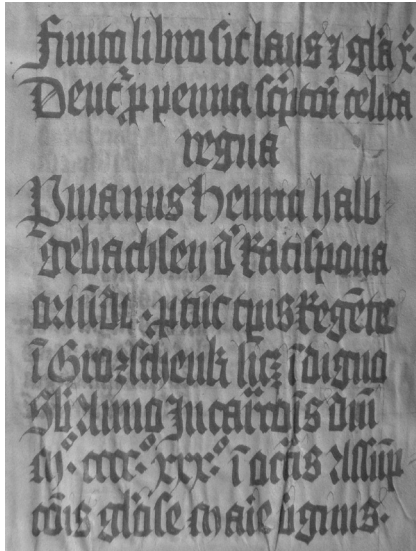 Finito libro sit laus ⁊ gl'a x°
Dent' p penna sc'ptori celica
regna
P manus Heinrici halb
gebachsen d' Ratispona
oriūdi · p tūc tp̄is Regēte
ī Grozschenk licz īdigno
Anno Incar̄cōis dn̄i
M° cccc° xxx° ī octīs Assūp
cōis gl'ose Marie v̄ginis·